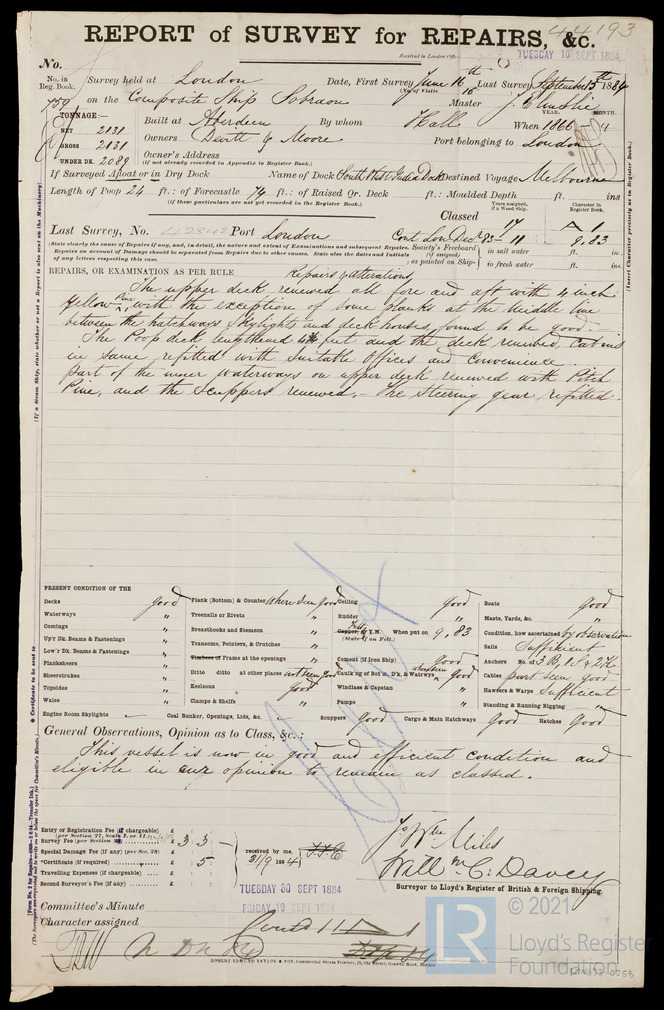 44193
REPORT of SURVEY for REPAIRS, &c.
Received in London Office
TUESDAY 10 SEPT 1884
No.
No. in Reg. Book. 759
Survey held at London Date, First Survey June 16th Last Survey September 15th 1884
(No. of Visits 15
on the Composite Ship Sobraon Master J. Elmslie
TONNAGE:—
NET 2131
GROSS 2131
UNDER DK. 2089
YEAR. MONTH.
Built at Aberdeen By whom Hall When 1866 - 11
Owners Devitt & Moore Port belonging to London
Owner's Address
(If not already recorded in Appendix to Register Book.)
If Surveyed Afloat or in Dry Dock Name of Dock South West India Dock Destined Voyage Melbourne
Length of Poop 24 ft.: of Forecastle 74 ft.: of Raised Qr. Deck ft.: Moulded Depth ft. ins
(if these particulars are not yet recorded in the Register Book.)
Years assigned, if a Wood Ship.
Character in Register Book.
Classed 17 A 1
Last Survey, No. Port London Cont Lon Dec. 83 - 11 9,83
(State clearly the causes of Repairs if any, and, in detail, the nature and extent of Examinations and subsequent Repairs.
Repairs on account of Damage should be separated from Repairs due to other causes. State also the dates and Initials
of any letters respecting this case.)
Society's Freeboard (if assigned) as painted on Ship—
in salt water ft. in.
in fresh water ft. in.
REPAIRS, OR EXAMINATION AS PER RULE Repairs & alterations
The upper deck renewed all fore and aft with 4 inch
Yellow Pine, with the exception of some planks at the middle line
between the hatchways skylights and deck houses, found to be good.—
The Poop deck lengthened feet and the deck renewed, Cabins
in same refitted with suitable Offices and Convenience.
part of the inner waterways on upper deck renewed with Pitch
Pine, and the Scuppers renewed.— The Steering gear refitted.
PRESENT CONDITION OF THE
Decks good
Waterways "
Comings "
Up'r Dk. Beams & Fastenings "
Low'r Dk. Beams & Fastenings "
Planksheers "
Sheerstrakes "
Topsides "
Wales "
Engine Room Skylights
Plank (Bottom) & Counter where seen good
Treenails or Rivets "
Breasthooks and Stemson "
Transoms, Pointers, & Crutches "
Timbers or Frame at the openings "
Ditto ditto at other places not seen good
Keelsons good
Clamps & Shelfs "
Coal Bunker, Openings, Lids, &c.
Ceiling good
Rudder "
Felt
Copper, or Y.M. When put on 9,83
(State if on Felt.)
Cement (if Iron Ship) Good
Caulk'ng of Bot'm, D'k, & Watrwys where seen good
Windlass & Capstan "
Pumps "
Scuppers Good Cargo & Main Hatchways Good Hatches Good
Boats good
Masts, Yards, &c. "
Condition, how ascertained by observation
Sails Sufficient
Anchors No. of 3 B, 1 S & 2 K
Cables part seen good
Hawsers & Warps Sufficient
Standing & Running Rigging Good
General Observations, Opinion as to Class, &c.:
This vessel is now in good and efficient condition and
eligible in our opinion to remain as classed.
Entry or Registration Fee (if chargeable) £
(per Section 27,
Survey Fee (per Section £ 3 3
Special Damage Fee (if any) (per Sec. 28) £
*Certificate (if required) £ 5
Travelling Expenses (if chargeable) £
Second Surveyor's Fee (if any) £
received by me,
21/9 1884
Jo. Wm Miles
Will m C. Davey
Surveyor to Lloyd's Register of British & Foreign Shipping.
TUESDAY 30 SEPT 1884
Committee's Minute FRIDAY 19 SEPT 1884
Character assigned Cont 11 A 1
ROBERT EDMUND TAYLOR & SON,
(If a Steam Ship, state whether or not a Report is also sent on the Machinery)
* Certificates to be sent to
(Insert Character precisely as in Register Book.)
LR
© 2021
Lloyd's Register
Foundation